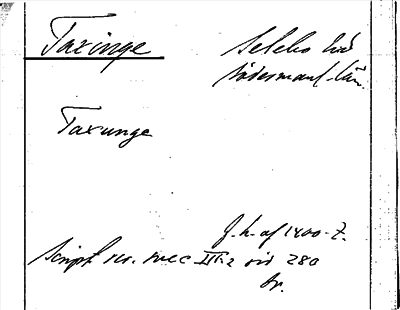 Taxinge
Selebo hd
Södermanl. län.
Taxunge
f. h. af 1400-t.
Script. rer. svec III:2 sid 280
br.